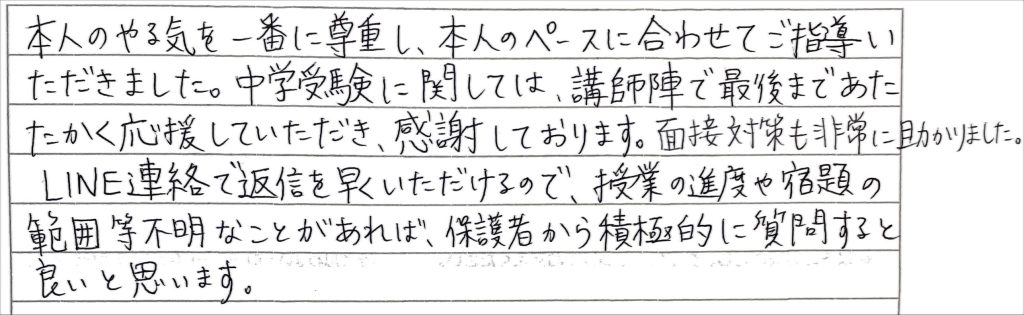 本人のやる気を一番に尊重し、本人のペースに合わせてご指導い
ただきました。中学受験に関しては、講師陣で最後まであた
たかく応援していただき、感謝しております。面接対策も非常に助かりました。
LINE連絡で返信を早くいただけるので、授業の進度や宿題の
範囲等不明なことがあれば、保護者から積極的に質問すると
良いと思います。